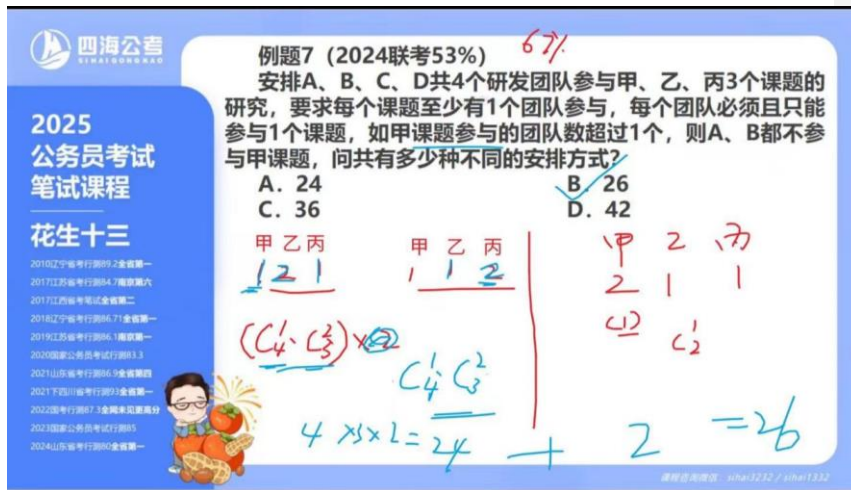 四海公考
SIHAIGONGKAO
2025
公务员考试
笔试课程
花生十三
2010辽宁省考行测89.2全省第一
2017江苏省考行测84.7南京第六
2017江西省考笔试全省第二
2018辽宁省考行测86.71全省第一
2019江苏省考行测86.1南京第一
2020国家公务员考试行测83.3
2021山东省考行测86.9全省第四
2021下四川省考行测93全省第一
2022国考行测87.3全网未见更高分
2023国家公务员考试行测85
2024山东省考行测80全省第一
例题7（2024联考53%） 67%
安排A、B、C、D共4个研发团队参与甲、乙、丙3个课题的
研究，要求每个课题至少有1个团队参与，每个团队必须且只能
参与1个课题，如甲课题参与的团队数超过1个，则A、B都不参
与甲课题，问共有多少种不同的安排方式？
A. 24 B. 26
C. 36 D. 42
甲 乙 丙 甲 乙 丙 甲 乙 丙
1 2 1 1 1 2 2 1 1
(C₄¹·C₃²)×2 (1) C₂¹
C₄¹·C₃²
4×3×2=24 + 2 =26
课程咨询微信：sihai3232 / sihai1332